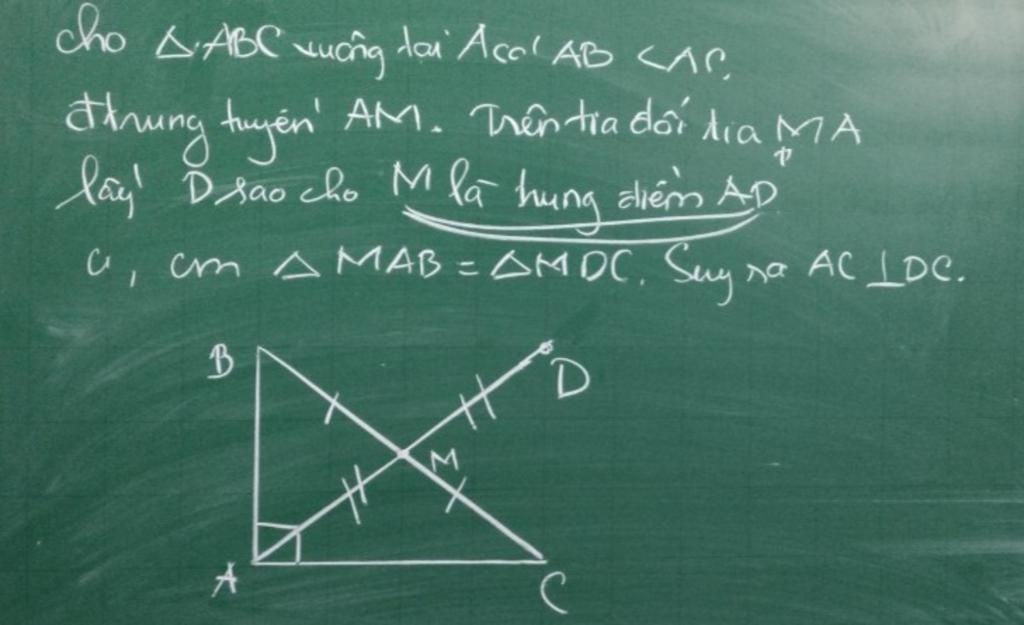 cho △ABC vuông tại A có AB < AC.
đ trung tuyến AM. Trên tia đối tia MA
lấy D sao cho M là trung điểm AD
a, cm △MAB = △MDC. Suy ra AC ⊥ DC.
B
D
M
A
C